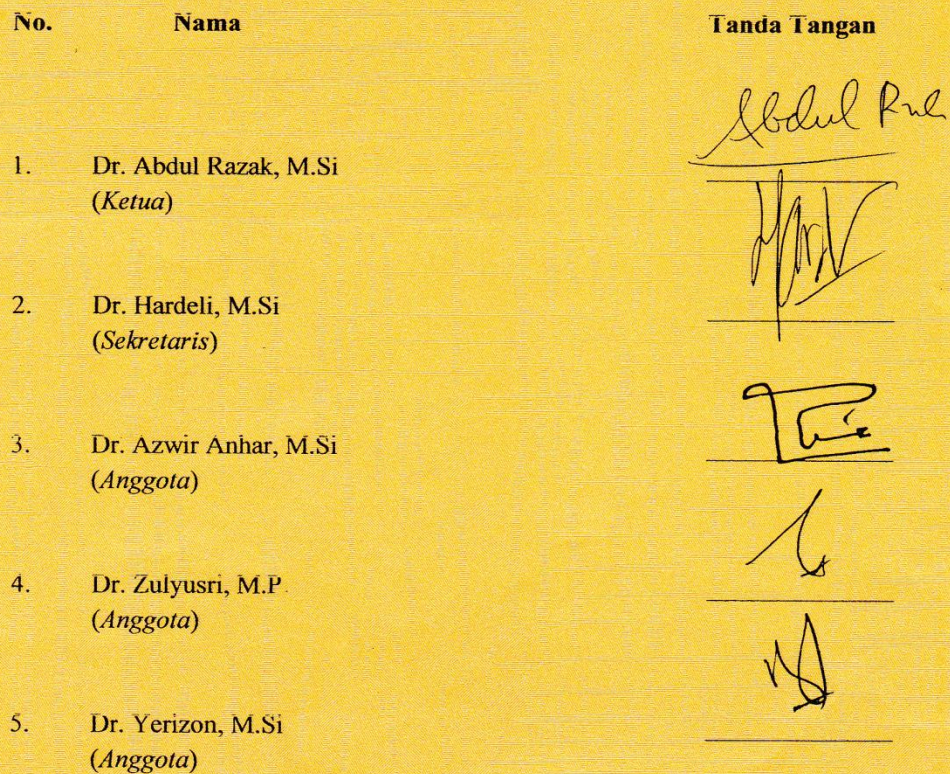 No. Nama Tanda Tangan
Abdul
1. Dr. Abdul Razak, M.Si
(Ketua)
2. Dr. Hardeli, M.Si
(Sekretaris)
3. Dr. Azwir Anhar, M.Si
(Anggota)
4. Dr. Zulyusri, M.P.
(Anggota)
5. Dr. Yerizon, M.Si
(Anggota)